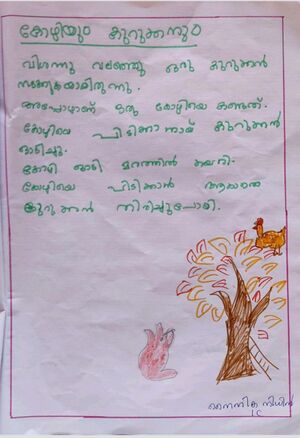 കോഴിയും കുറുക്കനും
വിശന്നു വലഞ്ഞു ഒരു കുറുക്കൻ
നടക്കുകയായിരുന്നു.
അപ്പോഴാണ് ഒരു കോഴിയെ കണ്ടത്.
കോഴിയെ പിടിക്കാനായ് കുറുക്കൻ
ഓടിച്ചു.
കോഴി ഓടി മരത്തിൽ കയറി.
കോഴിയെ പിടിക്കാൻ ആകാതെ
കുറുക്കൻ തിരിച്ചുപോയി.
നൈനിക നിധിൻ
1 C